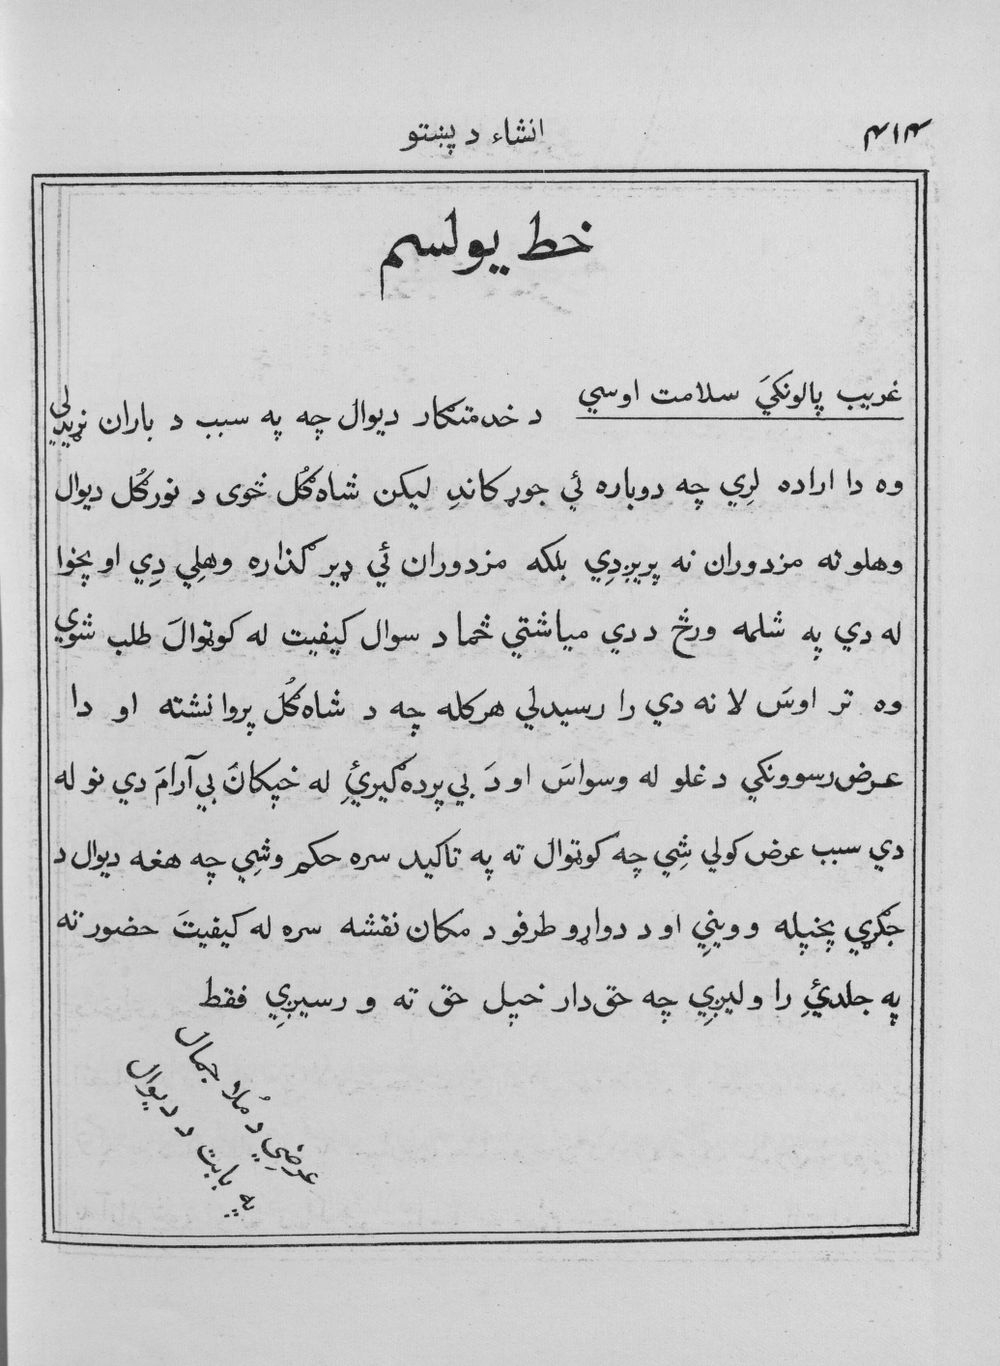 انشاء د پښتو
۴۱۴
خط يولسم
غريب پالونکيَ سلامت اوسي د خدمتګار ديوال چه په سبب د باران نړيدلي
وه دا اراده لرِي چه دوباره ئي جوړ کاندِ ليکن شاه ګُل څوی د نورګُل ديوال
وهلو ته مزدوران نه پريږدِي بلکه مزدوران ئي ډير ګذاره وهلِي دِي او پخوا
له دي په شلمه ورځ د دي مياشتي څما د سوال کيفيت له کوتوالَ طلب شوي
وه تر اوسَ لا نه دي را رسيدلي هر کله چه د شاه ګُل پروا نشته او دا
عرض رسوونکي د غلو له وسواسَ او دَ بي پرده ګيرئِ له خپکانَ بي آرامَ دي نو له
دي سبب عرض کولي شِي چه کوتوال ته په تاکيد سره حکم وشِي چه هغه ديوال د
جګړي پخپله وويني او د دواړو طرفو د مکان نقشه سره له کيفيتَ حضور ته
په جلدئِ را وليږِي چه حق دار خپل حق ته و رسيږِي فقط
عرضِي د مُلا جمال
په بابت د ديوال